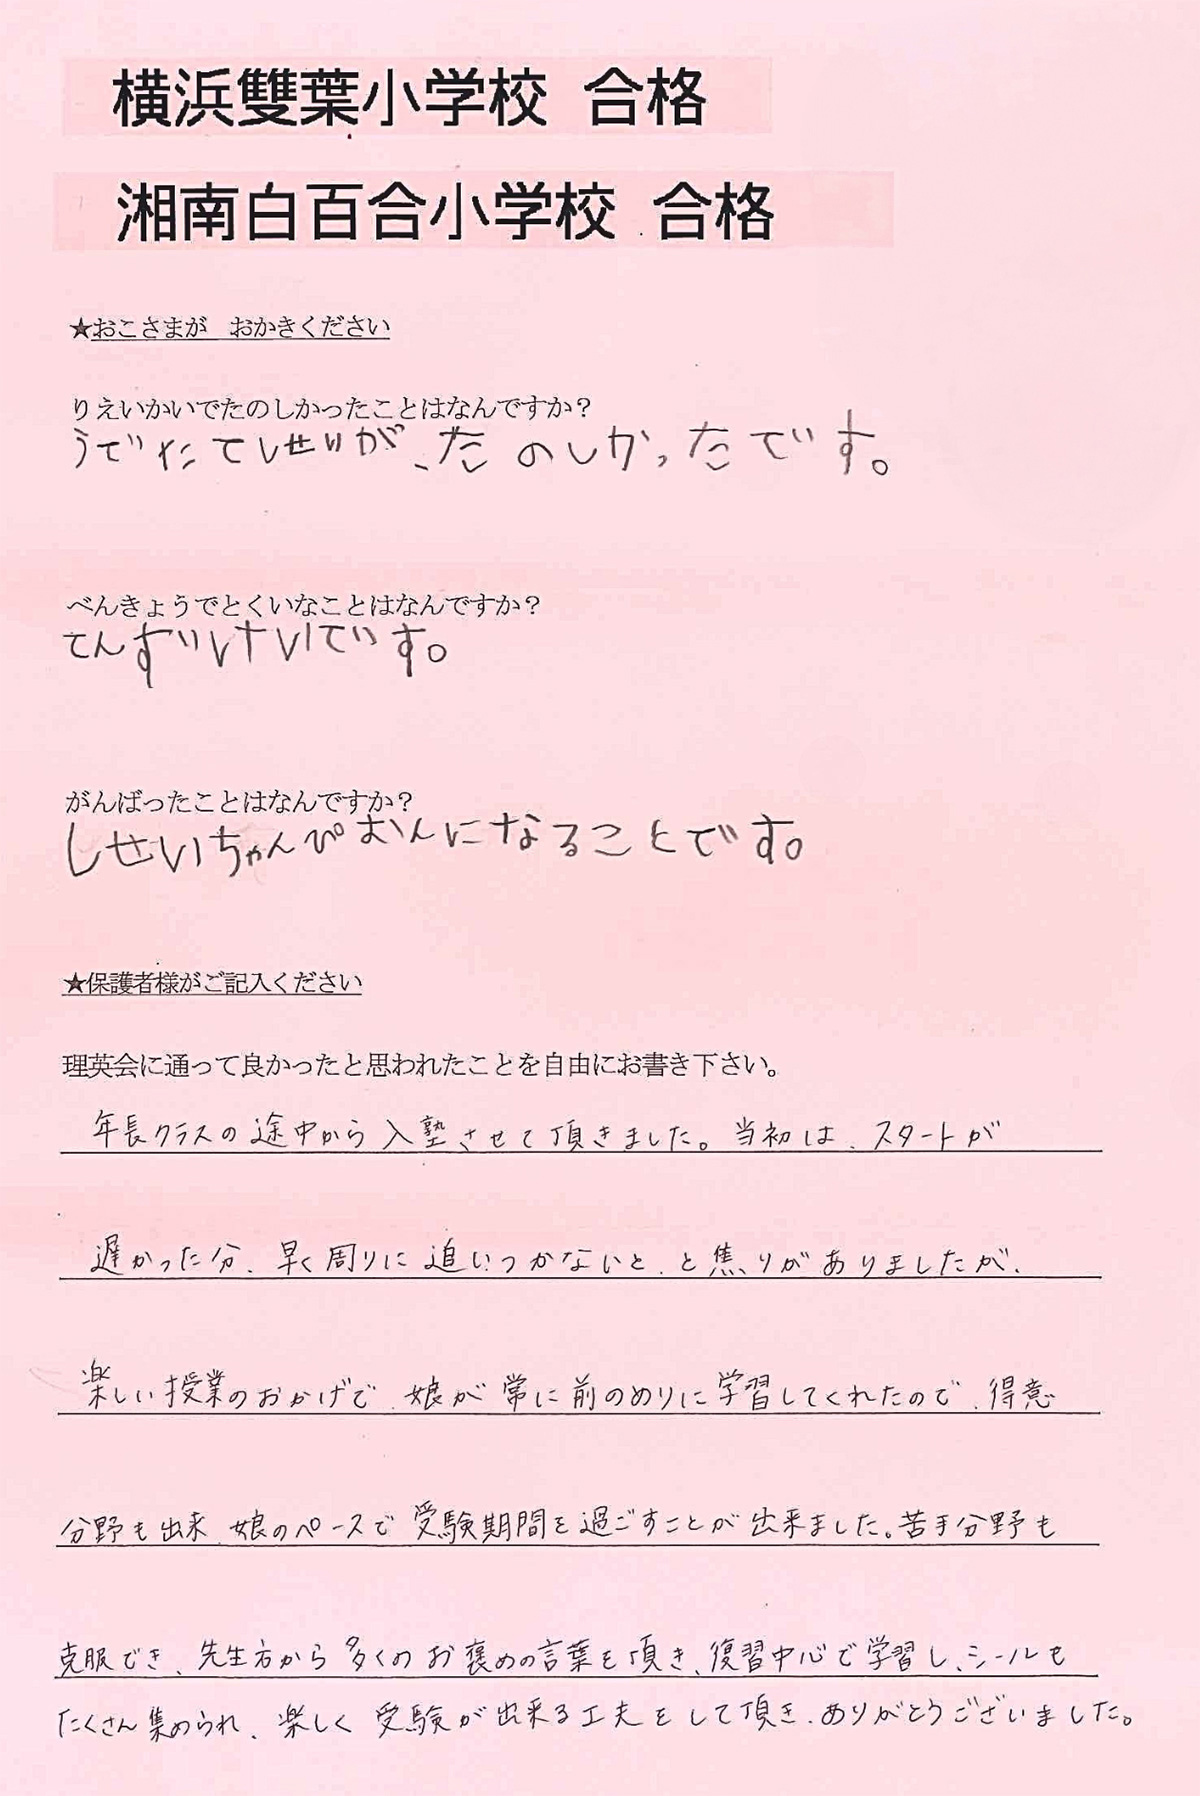 横浜雙葉小学校 合格
湘南白百合小学校 合格
★おこさまが おかきください
りえいかいでたのしかったことはなんですか？
うでたてしせいが、たのしかったです。
べんきょうでとくいなことはなんですか？
てんずけいです。
がんばったことはなんですか？
しせいちゃんぴおんになることです。
★保護者様がご記入ください
理英会に通って良かったと思われたことを自由にお書き下さい。
年長クラスの途中から入塾させて頂きました。当初は、スタートが
遅かった分、早く周りに追いつかないと、と焦りがありましたが、
楽しい授業のおかげで、娘が常に前のめりに学習してくれたので、得意
分野も出来、娘のペースで受験期間を過ごすことが出来ました。苦手分野も
克服でき、先生方から多くのお褒めの言葉を頂き、復習中心で学習し、シールも
たくさん集められ、楽しく受験が出来る工夫をして頂き、ありがとうございました。